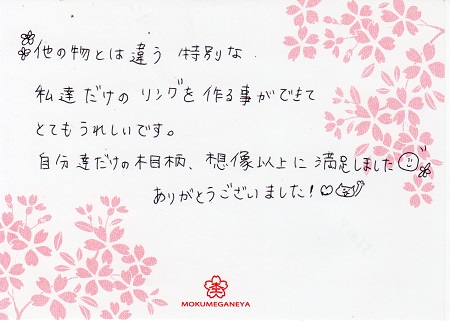 他の物とは違う 特別な
私達だけのリングを作る事ができて
とてもうれしいです。
自分達だけの木目柄、想像以上に満足しました
ありがとうございました!♡
MOKUMEGANEYA